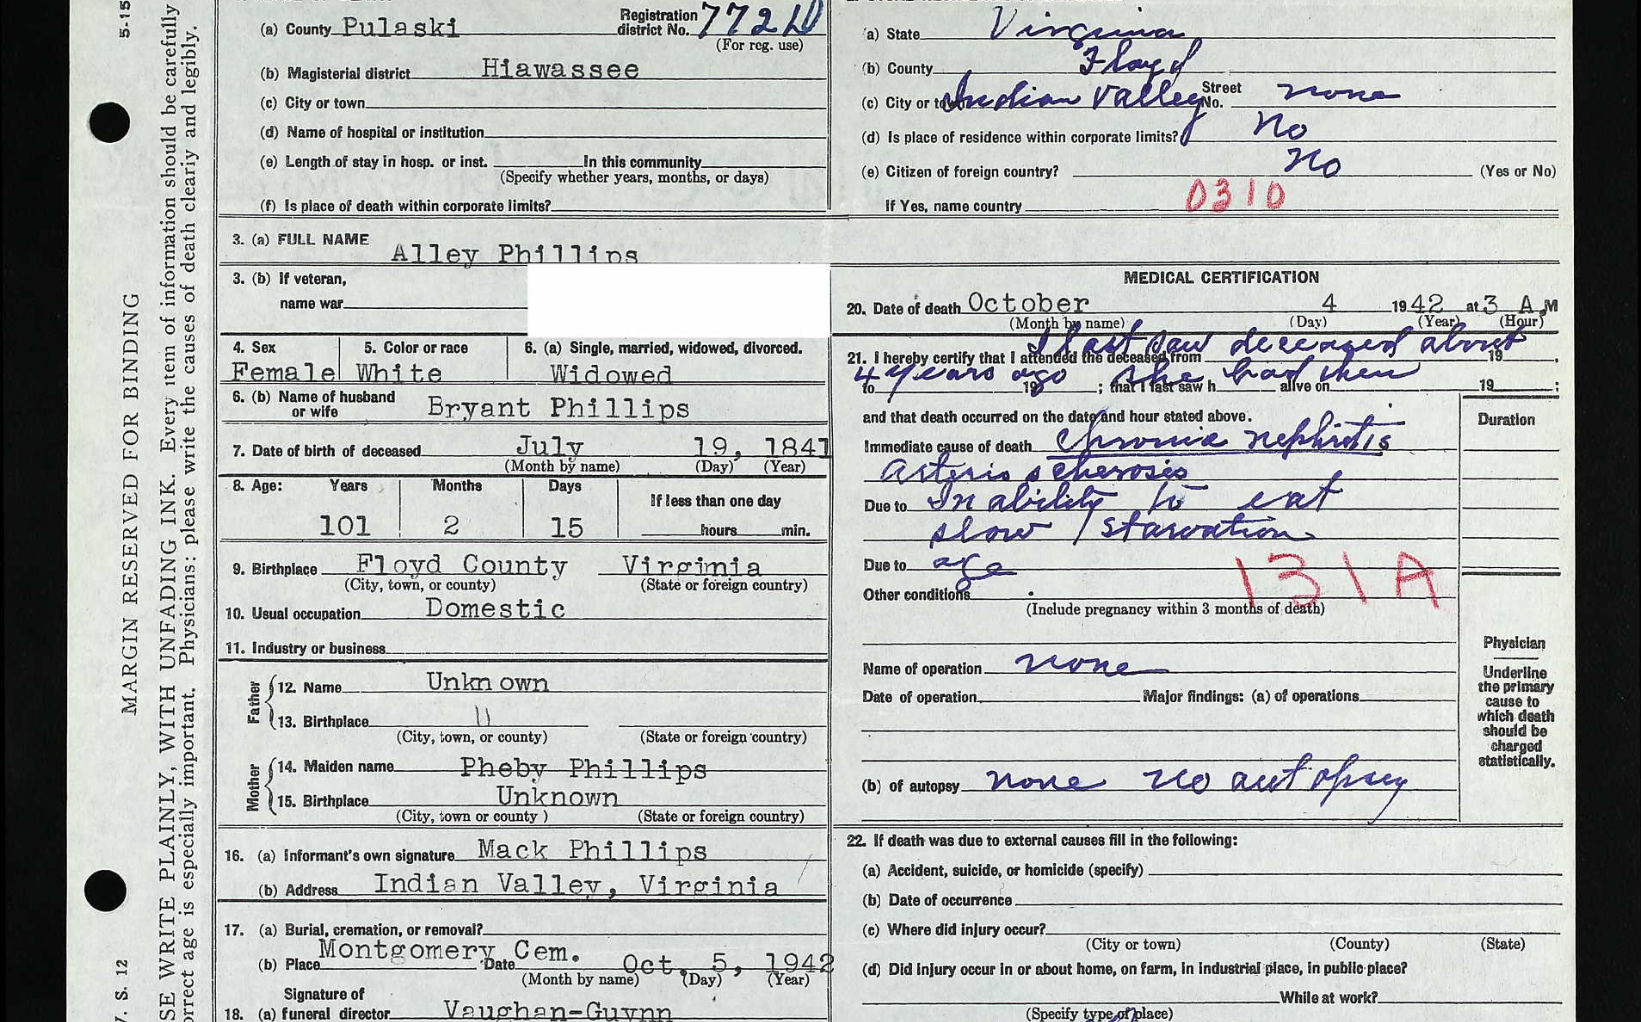 5-15
MARGIN RESERVED FOR BINDING
SE WRITE PLAINLY, WITH UNFADING INK. Every item of information should be carefully
orrect age is especially important. Physicians: please write the causes of death clearly and legibly.
V. S. 12
(a) County Pulaski Registration district No. 772
(For reg. use)
(b) Magisterial district Hiawassee
(c) City or town
(d) Name of hospital or institution
(e) Length of stay in hosp. or inst. In this community
(Specify whether years, months, or days)
(f) Is place of death within corporate limits?
(a) State Virginia
(b) County Floyd
(c) City or town Indian Valley Street No. none
(d) Is place of residence within corporate limits? No
(e) Citizen of foreign country? No (Yes or No)
If Yes, name country 0310
3. (a) FULL NAME Alley Phillips
3. (b) If veteran,
name war
4. Sex 5. Color or race 6. (a) Single, married, widowed, divorced.
Female White Widowed
6. (b) Name of husband or wife Bryant Phillips
7. Date of birth of deceased July 19, 1841
(Month by name) (Day) (Year)
8. Age: Years Months Days If less than one day
101 2 15 hours min.
9. Birthplace Floyd County Virgimia
(City, town, or county) (State or foreign country)
10. Usual occupation Domestic
11. Industry or business
Father
12. Name Unknown
13. Birthplace "
(City, town, or county) (State or foreign country)
Mother
14. Maiden name Pheby Phillips
15. Birthplace Unknown
(City, town or county ) (State or foreign country)
16. (a) Informant's own signature Mack Phillips
(b) Address Indian Valley, Virginia
17. (a) Burial, cremation, or removal?
(b) Place Montgomery Cem. Date Oct. 5, 1942
(Month by name) (Day) (Year)
Signature of
18. (a) funeral director Vaughan-Guynn
MEDICAL CERTIFICATION
20. Date of death October 4 1942 at 3 A M
(Month by name) (Day) (Year) (Hour)
I last saw deceased about
21. I hereby certify that I attended the deceased from 19 ,
4 years ago She had then
to 19 ; that I last saw h alive on 19 ;
and that death occurred on the date and hour stated above.
Duration
Immediate cause of death Chronic nephritis
Arterio scherosis
Due to In ability to eat
slow / starvation
Due to age
131A
Other conditions
(Include pregnancy within 3 months of death)
Name of operation none
Date of operation Major findings: (a) of operations
(b) of autopsy none no autopsy
Physician
Underline
the primary
cause to
which death
should be
charged
statistically.
22. If death was due to external causes fill in the following:
(a) Accident, suicide, or homicide (specify)
(b) Date of occurrence
(c) Where did injury occur?
(City or town) (County) (State)
(d) Did injury occur in or about home, on farm, in industrial place, in public place?
While at work?
(Specify type of place)